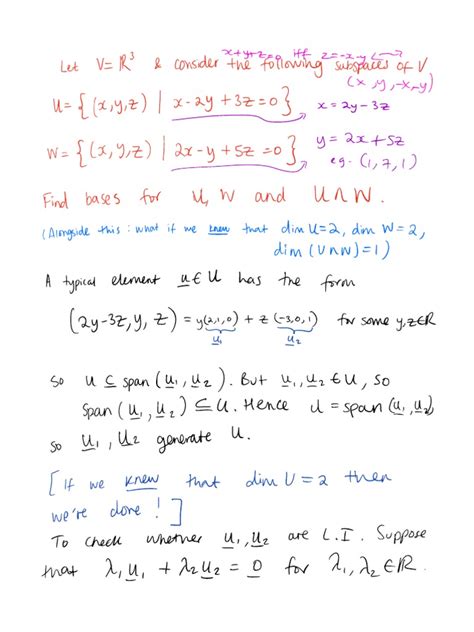 x+y+z=0 iff z=-x-y
Let V=ℝ³ & consider the following subspaces of V
(x,y,-x-y)
U={(x,y,z) | x-2y+3z=0} x=2y-3z
W={(x,y,z) | 2x-y+5z=0} y=2x+5z
eg. (1,7,1)
Find bases for U, W and U∩W.
(Alongside this: what if we knew that dim U=2, dim W=2,
dim(U∩W)=1)
A typical element u∈U has the form
(2y-3z, y, z) = y(2,1,0) + z(-3,0,1) for some y,z∈ℝ
u₁ u₂
So U⊆span(u₁,u₂). But u₁,u₂∈U, so
span(u₁,u₂)⊆U. Hence U=span(u₁,u₂)
so u₁, u₂ generate U.
[If we knew that dim U=2 then
we're done!]
To check whether u₁,u₂ are L.I. Suppose
that λ₁u₁+λ₂u₂=0 for λ₁,λ₂∈ℝ.